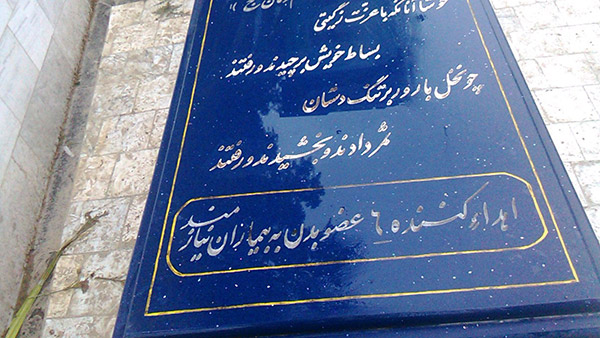 خوشا آنانکه با عزت ز گیتی
بساط خویش برچیدند و رفتند
چو نخل بارور بر تنگ دستان
ثمر دادند و بخشیدند و رفتند
اهداء کننده ۶ عضو بدن به بیماران نیازمند